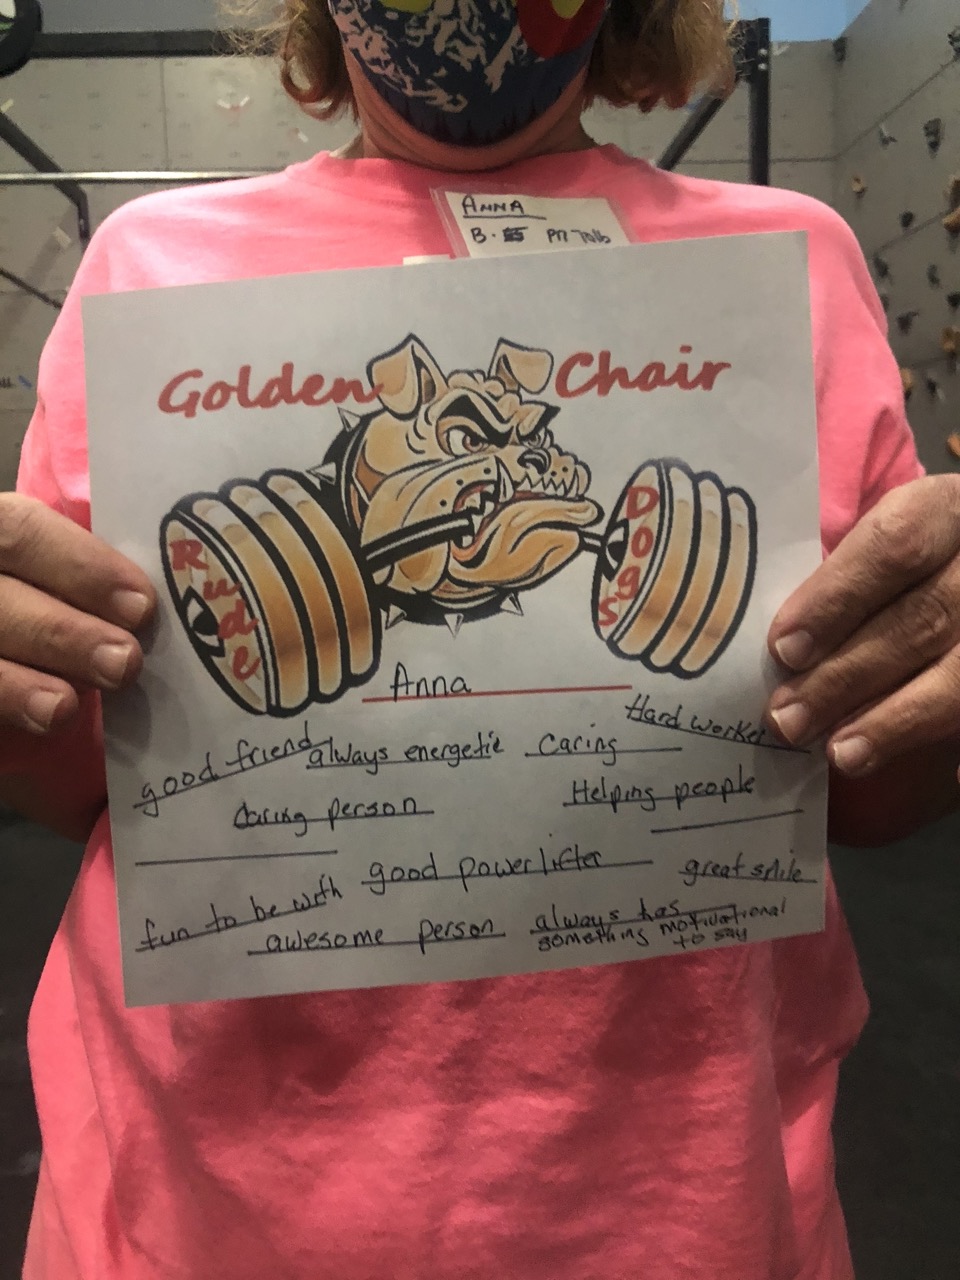 ANNA
B.
Golden Chair
Rude
Dogs
Anna
good friend always energetic caring Hard worker
caring person Helping people
fun to be with good powerlifter great smile
awesome person always has
something motivational
to say